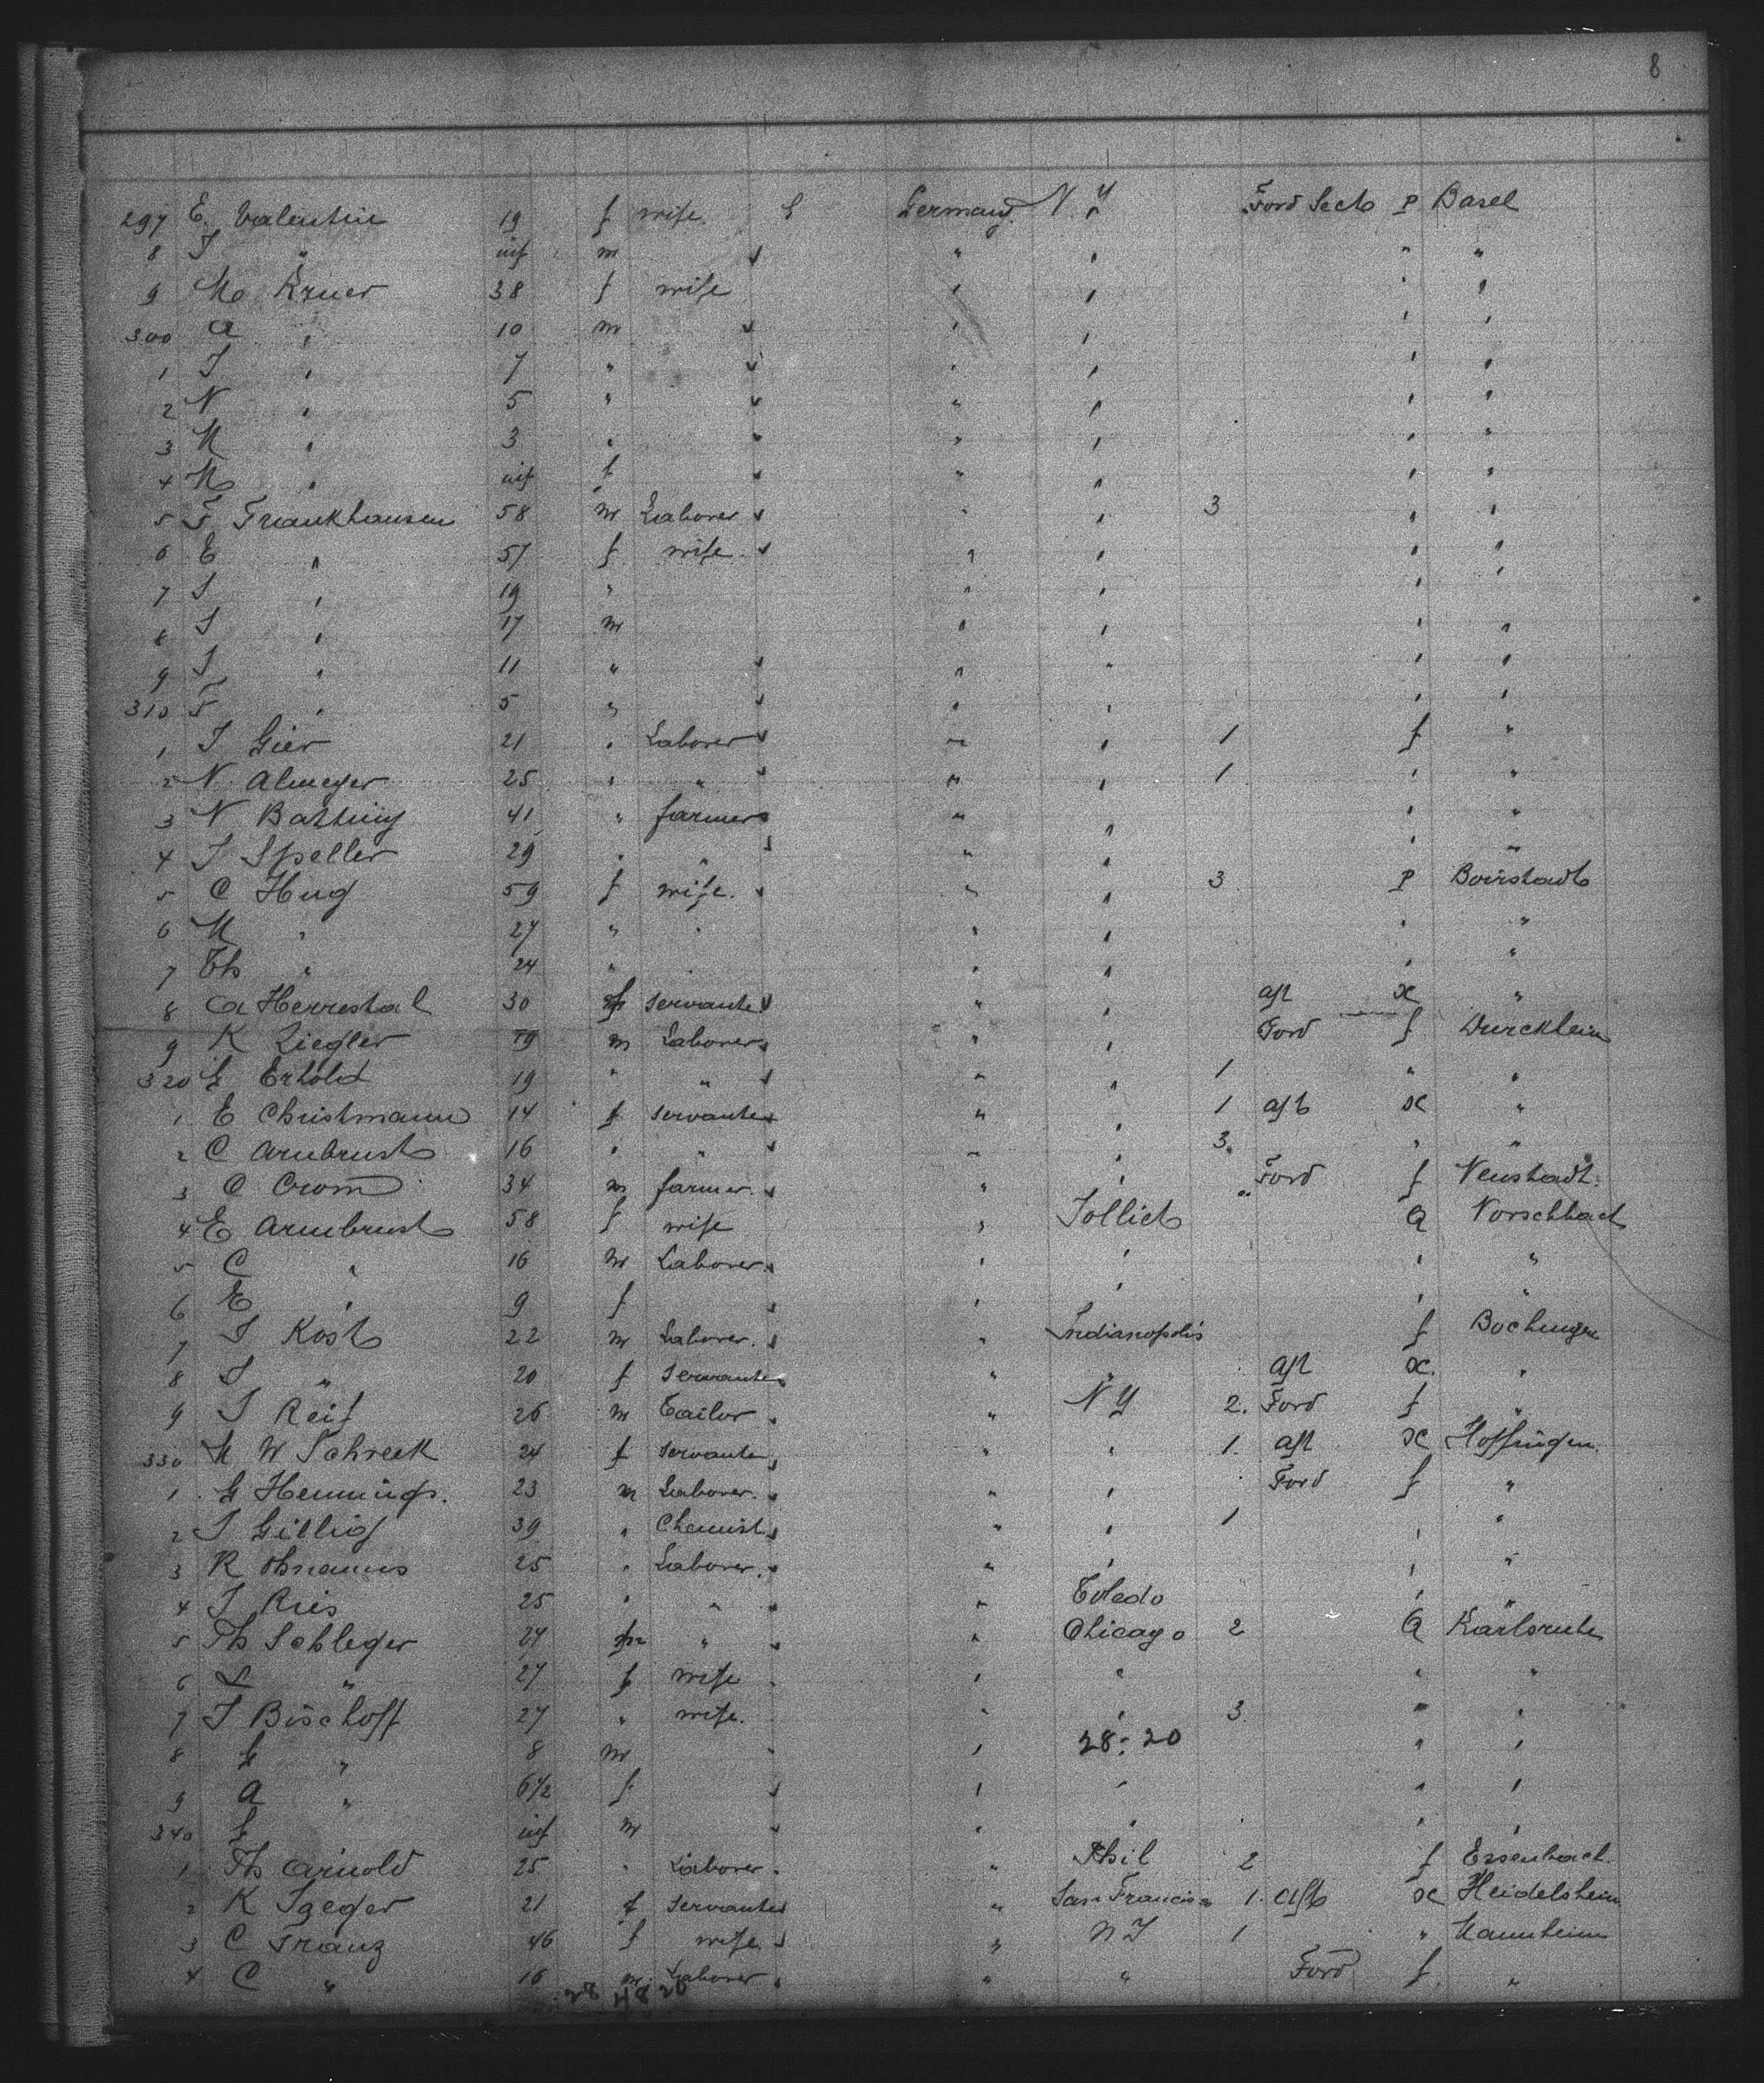 8
297 E. Valentin 19 f wife. G Germany. N. Y Ford Sect P Basel
8 J " inf m " " "
9 M Kruer 38 f wife " " " "
300 A " 10 m " " " "
1 J " 7 " " " " "
2 N " 5 " " " " "
3 M " 3 " " " " "
4 M " inf f " " " "
5 F Frankhausen 58 m Laborer " " 3 " "
6 E " 57 f wife " " " "
7 S " 19 " " " " "
8 J " 17 m " " " "
9 J " 11 " " " " "
310 F " 5 " " " " "
1 J Gier 21 " Laborer " " 1 f "
2 N. Almeyer 25 " " " " 1 " "
3 N 41 " farmer " " " "
4 J Speller 29 " " " " " "
5 C Hug 59 f wife. " " 3 P
6 M " 27 " " " " " "
7 Th " 24 " " " " " "
8 A Herrestal 30 f servante " " aft x "
9 K Ziegler 19 m Laborer " " Ford f Durckheim
320 G Erhold 19 " " " " 1 " "
1 E Christmann 14 f servante " " 1 aft x "
2 C Armbrust 16 " " " " 3. " "
3 C Crom 34 m farmer. " " Ford f Neustadt.
4 E Armbrust 58 f wife " Jolliet Q
5 C " 16 m Laborer. " " " "
6 E " 9 f " " " "
7 J Kost 22 m Laborer. " Indianopolis f Bochingen
8 S " 20 f Servante " " aft x. "
9 J Reif 26 m Tailor " N Y 2. Ford f "
330 M W Schreck 24 f servante " " 1. aft x
1 G Hennings. 23 m Laborer. " " Ford f "
2 J Gillig 39 " Chemist " " 1 " "
3 R 25 " Laborer. " " " "
4 J Ries 25 " " " Toledo " "
5 Th Schleger 24 m " " Chicago 2 Q Karlsruhe
6 L " 27 f wife " " " "
7 J Bischoff 27 " wife. " " 3 " "
8 G " 8 m " 28:20 " "
9 A " 6½ f " " " "
340 G inf m " " " "
1 Th Arnold 25 " Laborer " Phil 2 f Essenbach.
2 K Saeger 21 f Servante " San Francisco 1. aft x Heidelsheim
3 C Franz 46 f wife " N Y 1 " Mannheim
4 C " 16 m Laborer " " Ford f. "
28 48 20